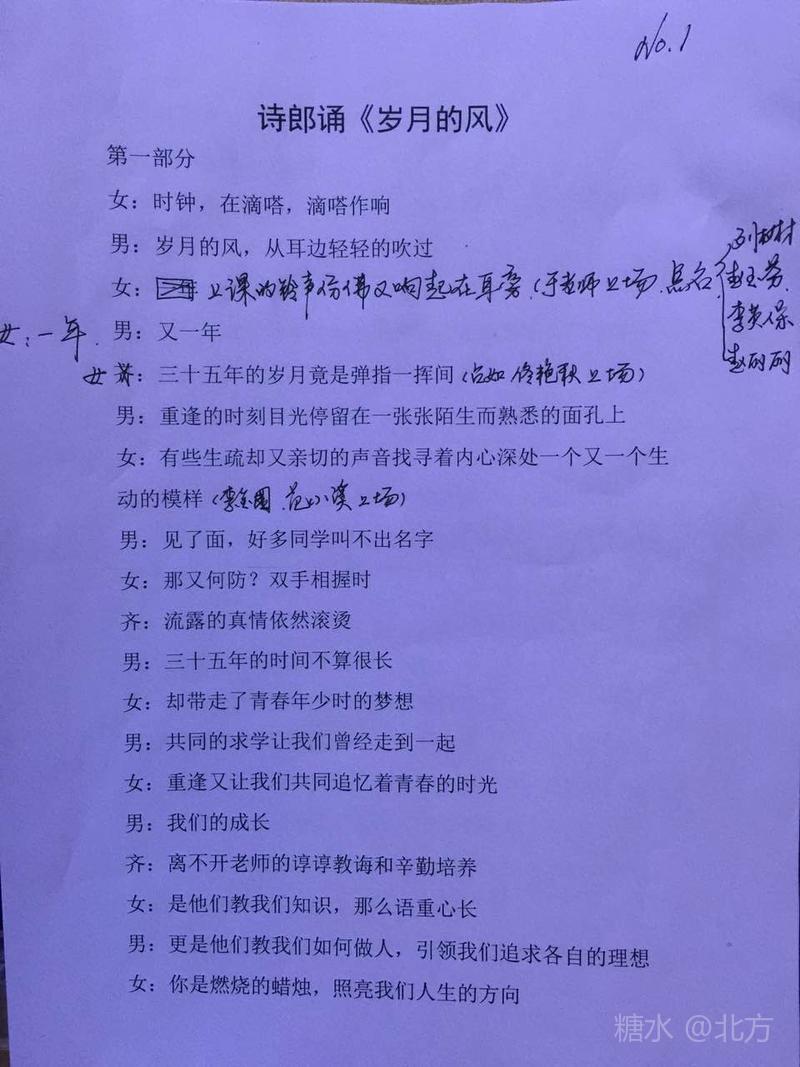 No.1
诗郎诵《岁月的风》
第一部分
女：时钟，在滴嗒，滴嗒作响
男：岁月的风，从耳边轻轻的吹过
女：上课的铃声仿佛又响起在耳旁（于老师上场，点名 刘树村
赵玉芬
李英保
赵丽丽
女：一年
男：又一年
女：三十五年的岁月竟是弹指一挥间（佟艳秋上场）
男：重逢的时刻目光停留在一张张陌生而熟悉的面孔上
女：有些生疏却又亲切的声音找寻着内心深处一个又一个生
动的模样（李金国 范小溪上场）
男：见了面，好多同学叫不出名字
女：那又何防？双手相握时
齐：流露的真情依然滚烫
男：三十五年的时间不算很长
女：却带走了青春年少时的梦想
男：共同的求学让我们曾经走到一起
女：重逢又让我们共同追忆着青春的时光
男：我们的成长
齐：离不开老师的谆谆教诲和辛勤培养
女：是他们教我们知识，那么语重心长
男：更是他们教我们如何做人，引领我们追求各自的理想
女：你是燃烧的蜡烛，照亮我们人生的方向
糖水 @北方